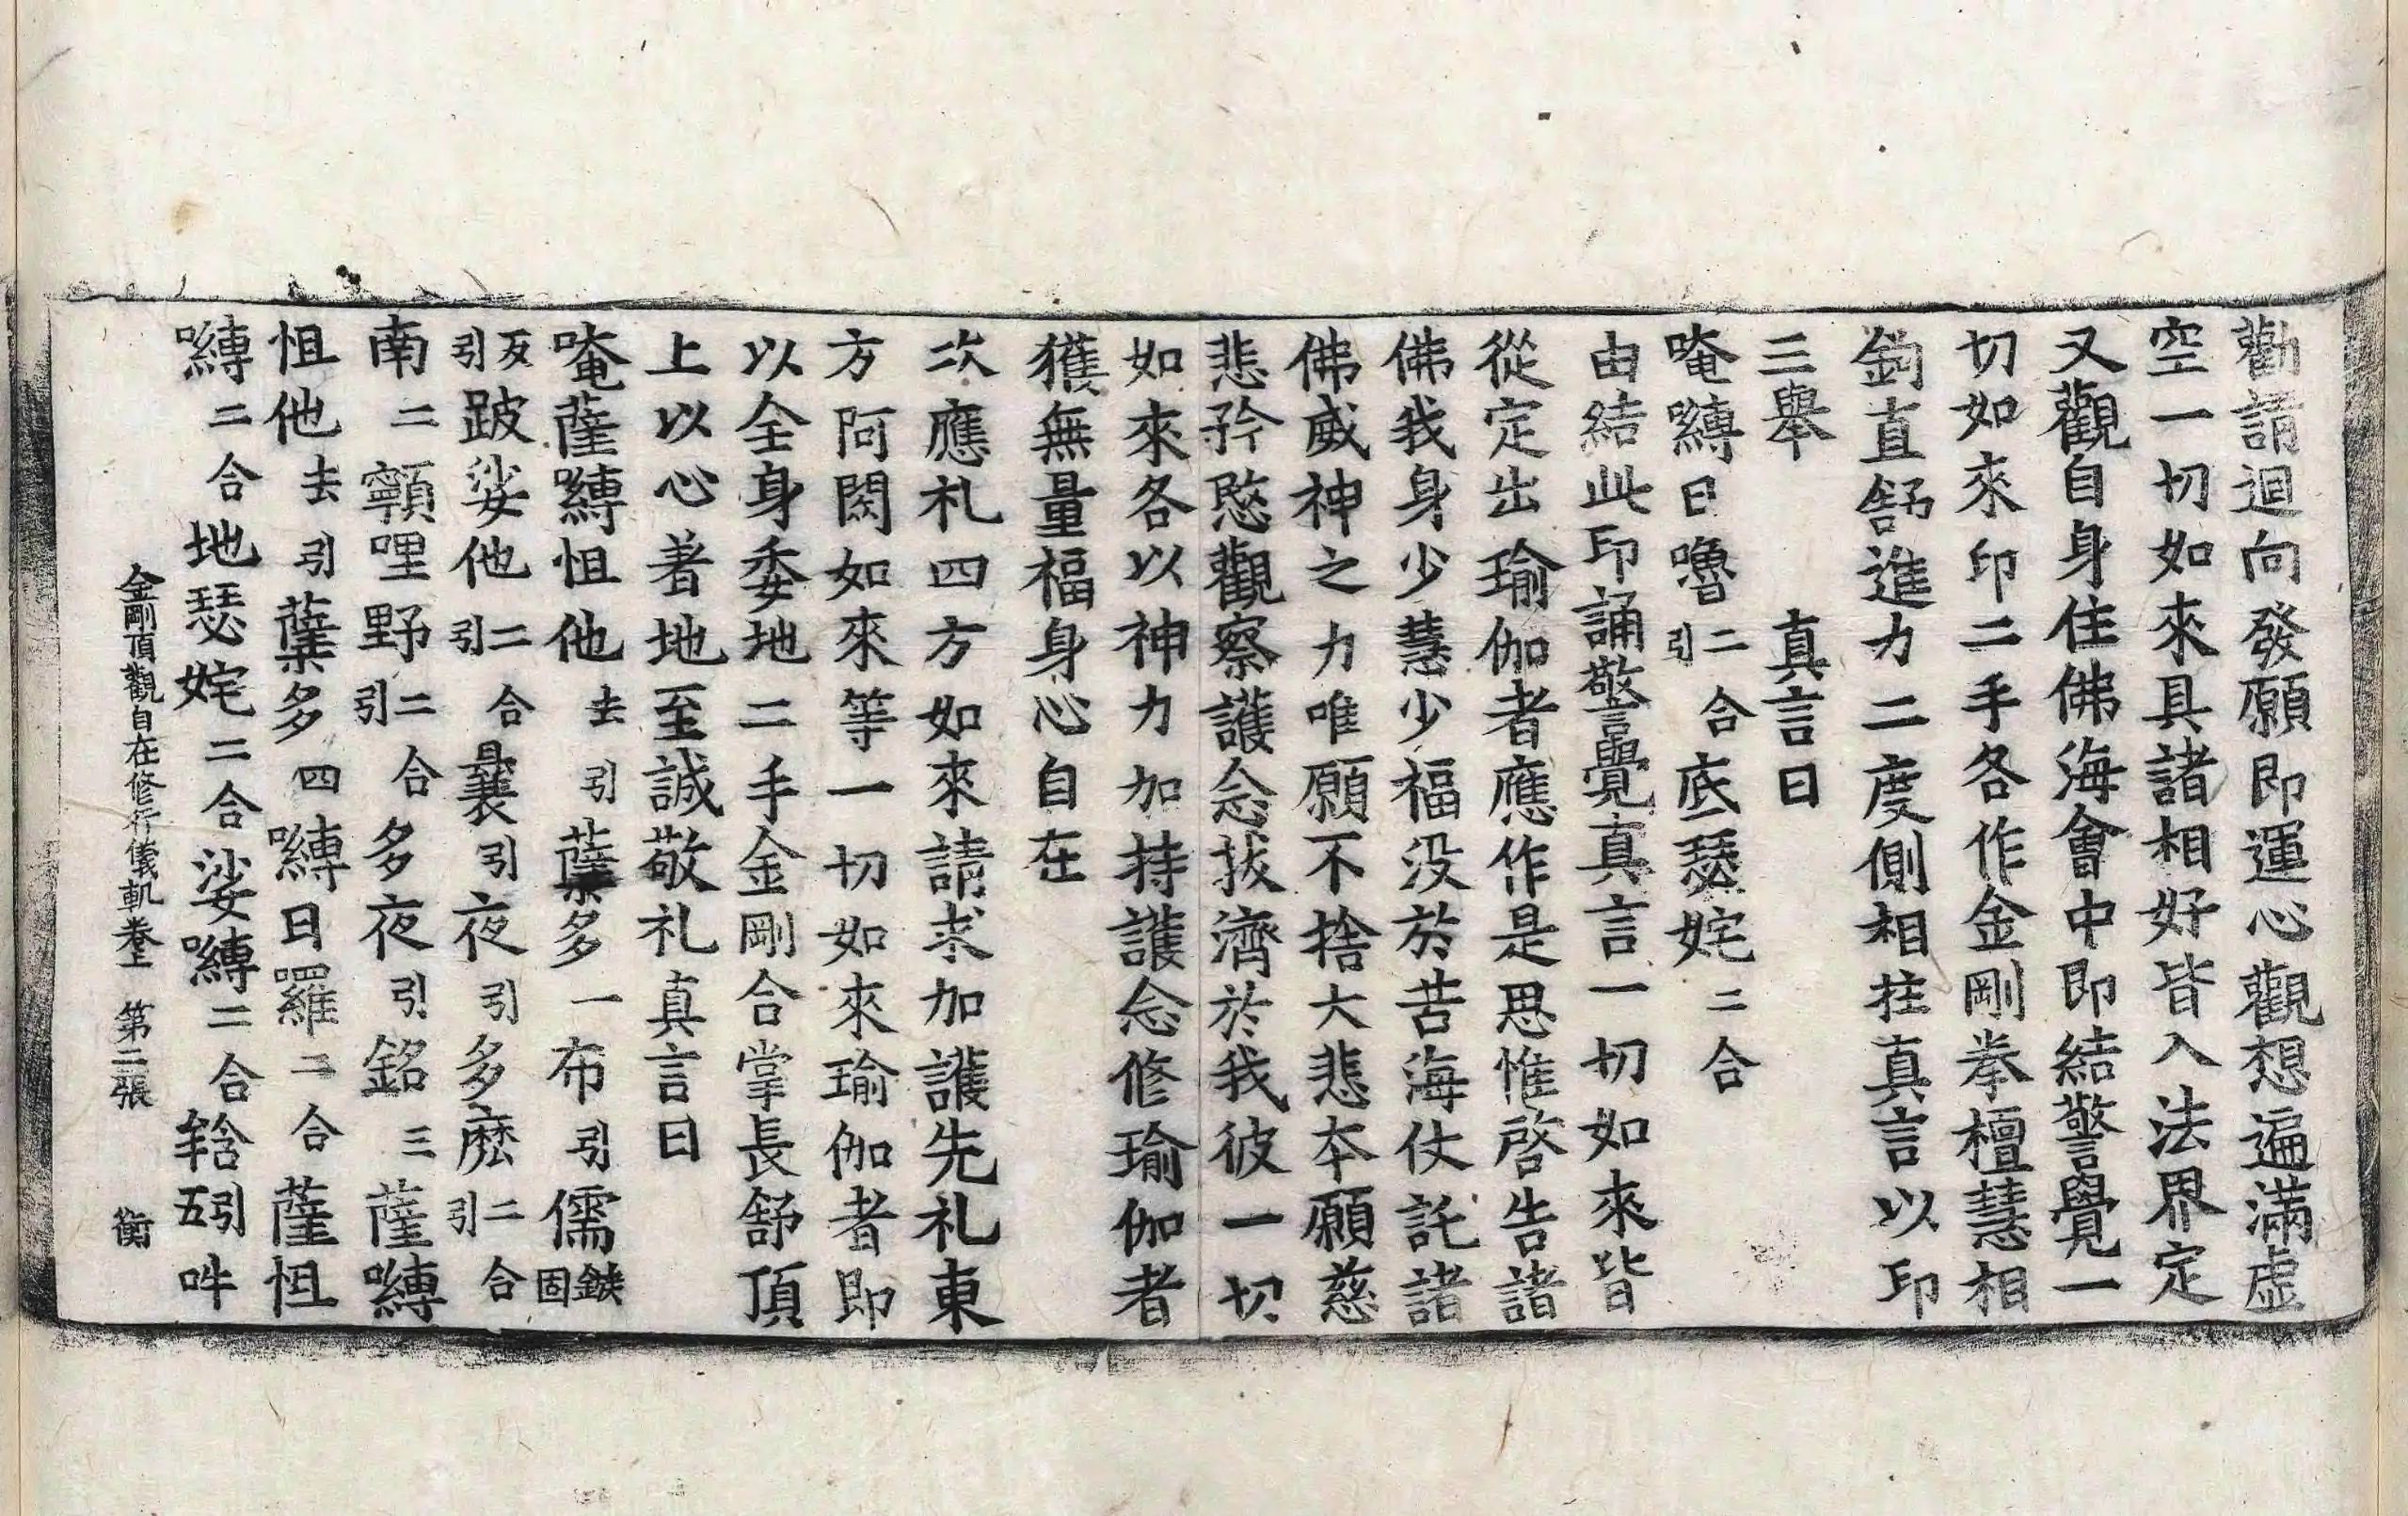 勸請迴向發願即運心觀想遍滿虛
空一切如來具諸相好皆入法界定
又觀自身住佛海會中即結警覺一
切如來印二手各作金剛拳檀慧相
鉤直舒進力二度側相拄真言以印
三舉 真言曰
唵嚩日嚕二合引底瑟姹二合
由結此印誦警覺真言一切如來皆
從定出瑜伽者應作是思惟啓告諸
佛我身少慧少福没於苦海仗託諸
佛威神之力唯願不捨大悲本願慈
悲矜愍觀察護念拔濟於我彼一切
如來各以神力加持護念修瑜伽者
獲無量福身心自在
次應礼四方如來請求加護先礼東
方阿閦如來等一切如來瑜伽者即
以全身委地二手金剛合掌長舒頂
上以心著地至誠敬礼真言曰
唵薩嚩怛他去引蘖多一布引儒鏃固
反引跛娑他二合引曩引夜引多麽二合引
南二顐哩野二合引多夜引銘三薩嚩
怛他去引蘖多四嚩日羅二合薩怛
嚩二合地瑟姹二合娑嚩二合𤚥五引吽
金剛頂觀自在修行儀軌卷上 第二張 衡